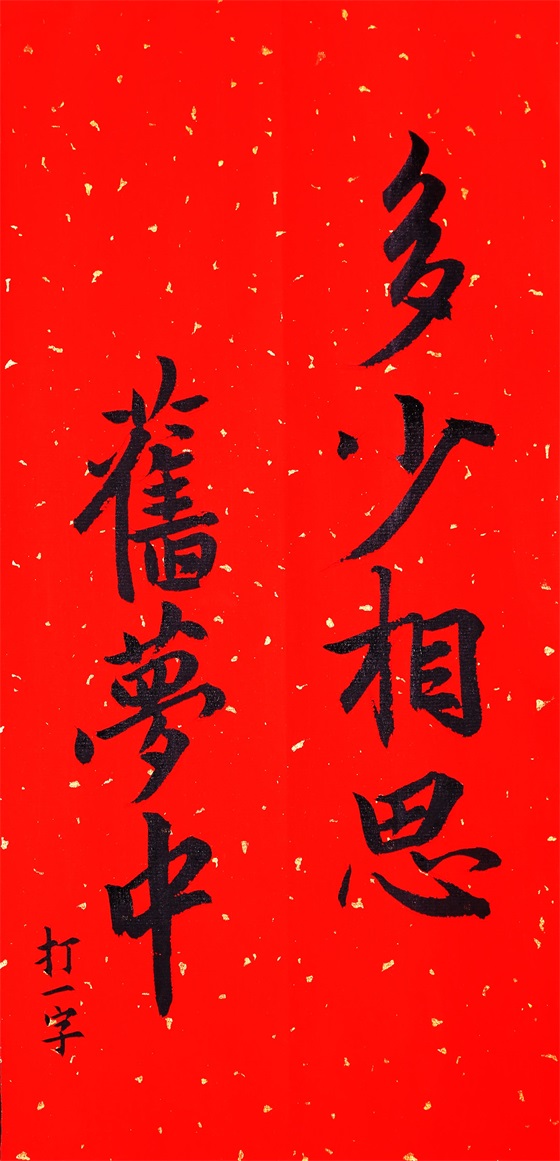 多少相思
舊夢中
打一字